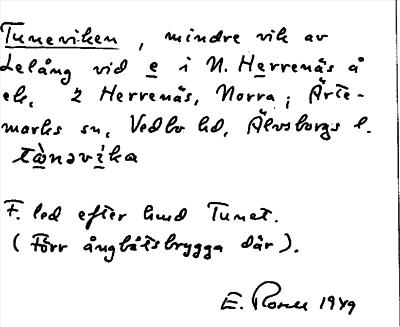 Tuneviken, mindre vik av
Lelång vid e i N. Herrenäs å
ek, 2 Herrenäs, Norra; Ärte-
marks sn, Vedbo hd, Älvsborgs l.
tὰnəvika
F. led efter hmd Tunet.
(Förr ångbåtsbrygga där).
E. Rosell 1949